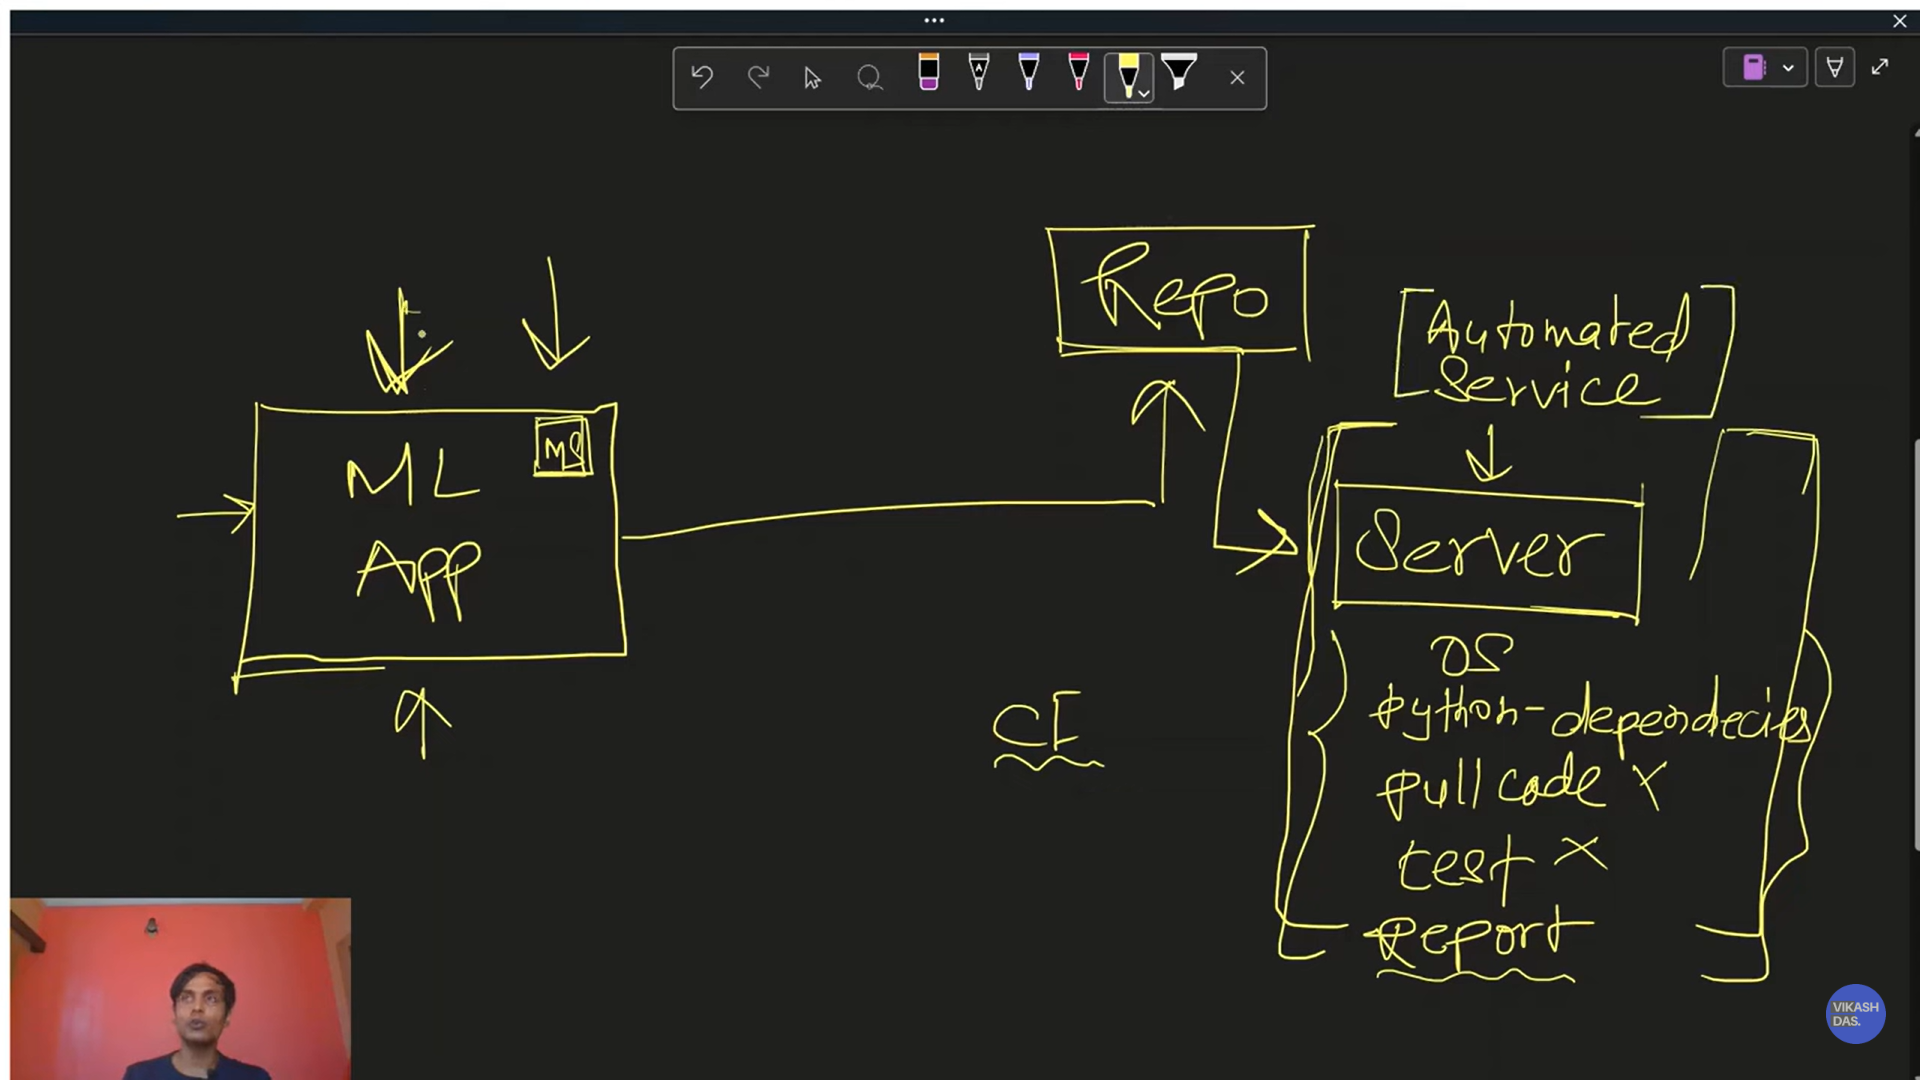 Repo
[Automated
Service]
ML
App
MS
Server
OS
python-dependecies
pull code X
test X
Report
CI
VIKASH
DAS.